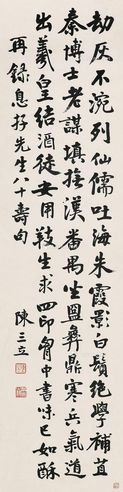 劫灰不涴列仙儒吐海朱霞影白鬚絕學補苴
秦博士老謀填撫漢番禺生圖彝鼎寒兵氣道
出羲皇結酒徒安用鞍生求四印胷中書味已如酥
再錄息存先生八十壽句
陳三立